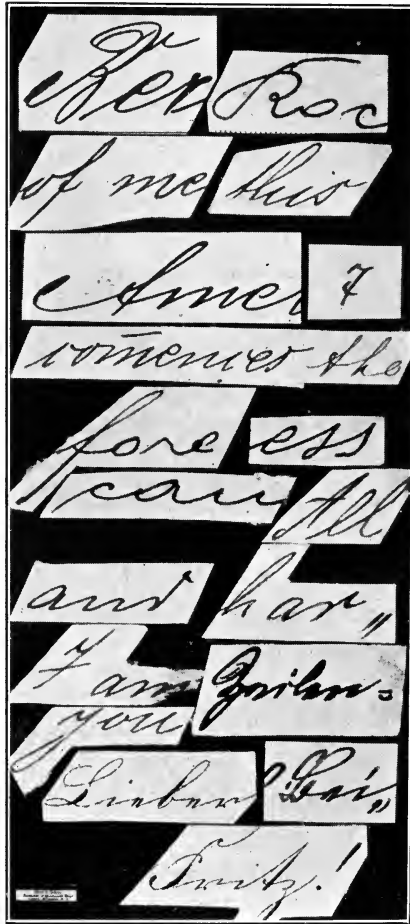 Roc
of me this
Amer 7
comences the
fore ess
can All
and har„
7 am Zeilen=
you
Lieber Bei„
Fritz!